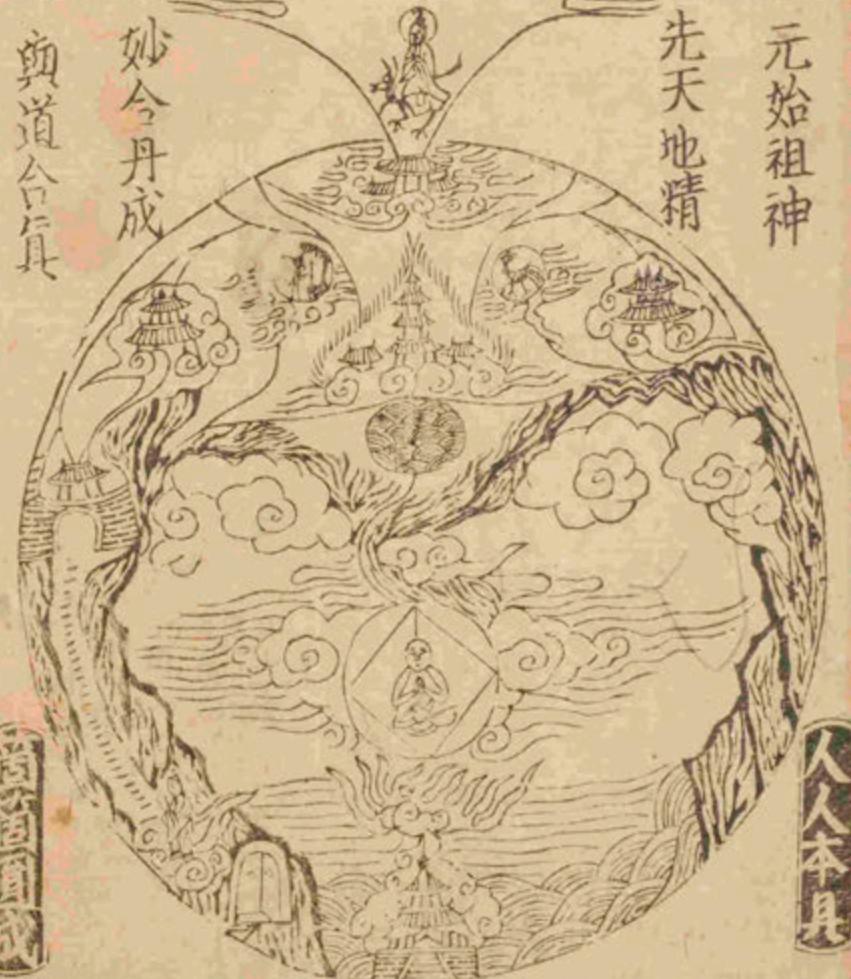 元始祖神
先天地精
妙合丹成
與道合真
人人本具
箇箇圓成